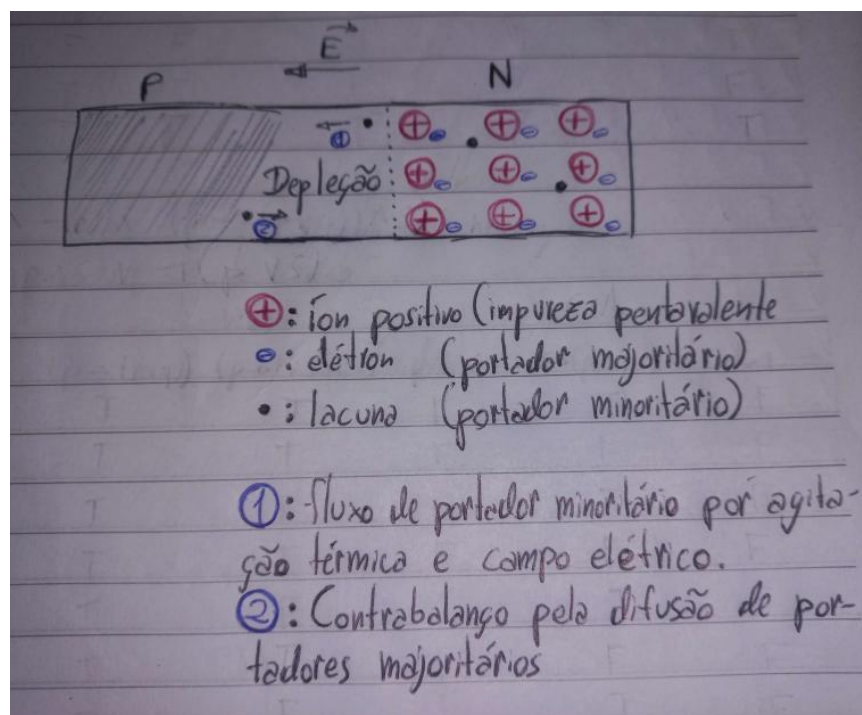 E
P N
1
Depleção
2
+: íon positivo (impureza pentavalente
-: elétron (portador majoritário)
•: lacuna (portador minoritário)
1: fluxo de portador minoritário por agita-
ção térmica e campo elétrico.
2: Contrabalanço pela difusão de por-
tadores majoritários